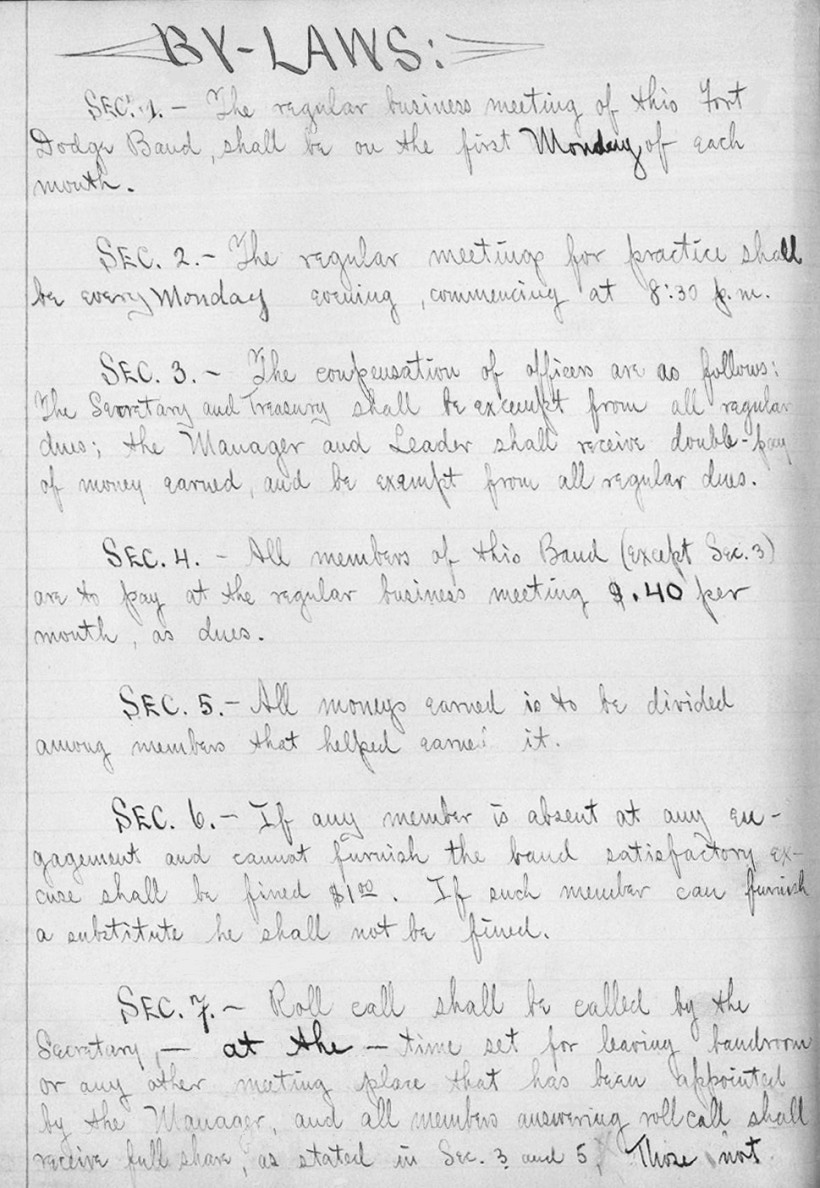 BY-LAWS:
SEC. 1. — The regular business meeting of this Fort
Dodge Band, shall be on the first Monday of each
month.
SEC. 2. — The regular meeting for practice shall
be every Monday evening, commencing at 8:30 p.m.
SEC. 3. — The compensation of officers are as follows:
The Secretary and Treasury shall be excempt from all regular
dues; the Manager and Leader shall receive double-pay
of money earned, and be exempt from all regular dues.
SEC. 4. — All members of this Band (except Sec. 3)
are to pay at the regular business meeting $.40 per
month, as dues.
SEC. 5. — All moneys earned is to be divided
among members that helped earned it.
SEC. 6. — If any member is absent at any en-
gagement and cannot furnish the band satisfactory ex-
cuse shall be fined $1.00. If such member can furnish
a substitute he shall not be fined.
SEC. 7. — Roll call shall be called by the
Secretary, — at the — time set for leaving bandroom
or any other meeting place that has been appointed
by the Manager, and all members answering roll call shall
receive full share, as stated in Sec. 3 and 5. Those not